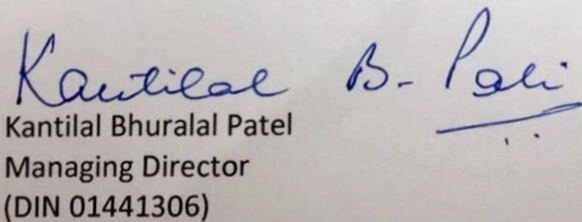 Kantilal B. Patel
Kantilal Bhuralal Patel
Managing Director
(DIN 01441306)